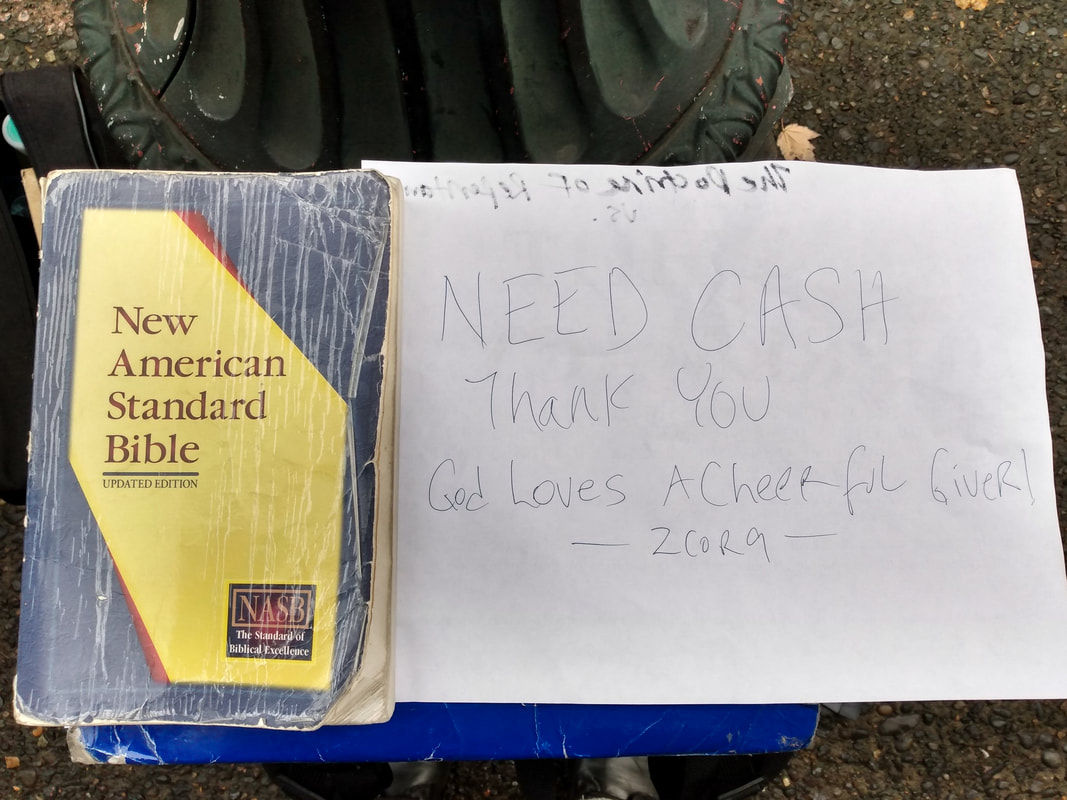 New
American
Standard
Bible
UPDATED EDITION
NASB
The Standard of
Biblical Excellence
The Doctrine of Repentan
vs.
NEED CASH
Thank YOU
God Loves A Cheerful Giver!
— 2COR9 —